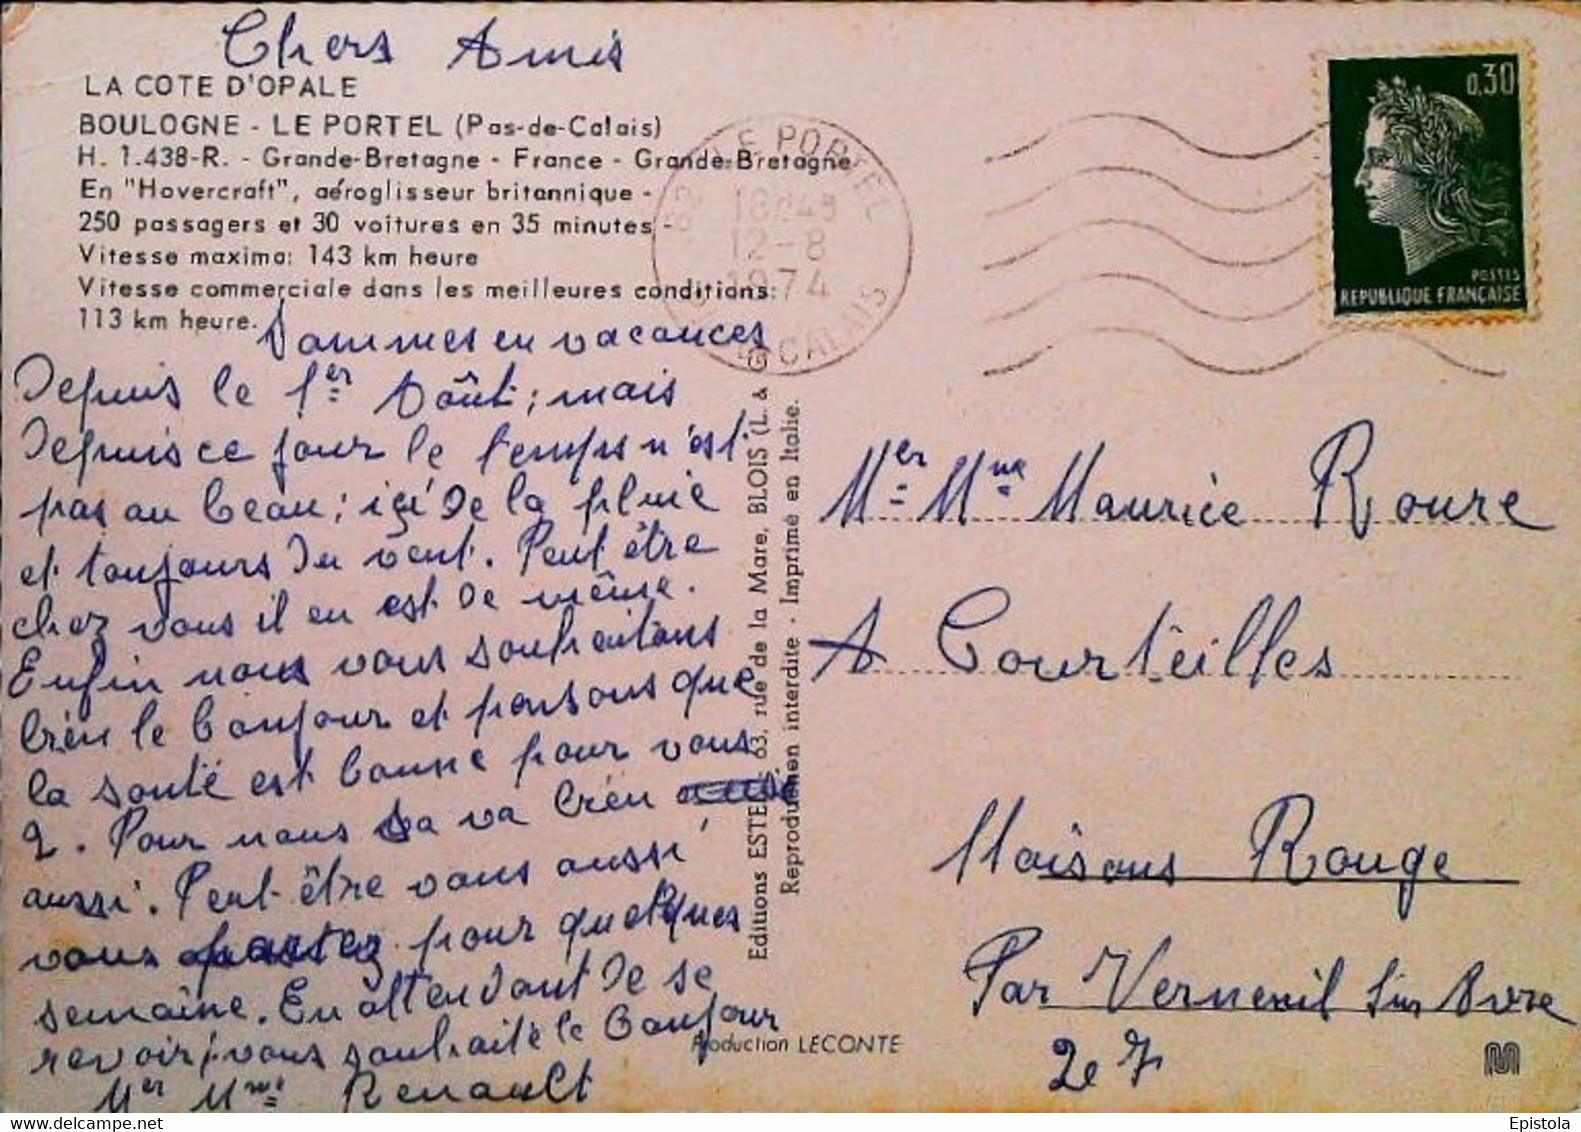 Chers Amis
LA COTE D'OPALE
BOULOGNE - LE PORTEL (Pas-de-Calais)
H. 1.438-R. - Grande-Bretagne - France - Grande-Bretagne
En "Hovercraft", aéroglisseur britannique -
250 passagers et 30 voitures en 35 minutes -
Vitesse maxima: 143 km heure
Vitesse commerciale dans les meilleures conditions:
113 km heure.
Sommes en vacances
Depuis le 1er Août; mais
Depuis ce jour le temps n'est
pas au beau; içi de la pluie
et toujours du vent. Peut être
chez vous il en est de même.
Enfin nous vous souhaitons
bien le bonjour et pensons que
la santé est bonne pour vous
2. Pour nous sa va bien
aussi. Peut-être vous aussi
vous partez pour quelques
semaine. En attendant de se
revoir, vous souhaite le bonjour
Mer Mme Renault
62 LE PORTEL
18H45
12-8
1974
CALAIS
0,30
POSTES
REPUBLIQUE FRANÇAISE
Editions ESTEL, 63, rue de la Mare, BLOIS (L. & C
Reproduction interdite - Imprimé en Italie.
Mer Mme Maurice Roure
A Courteilles
Maisons Rouge
Par Verneuil sur Avre
27
Production LECONTE
M
Epistola
www.delcampe.net